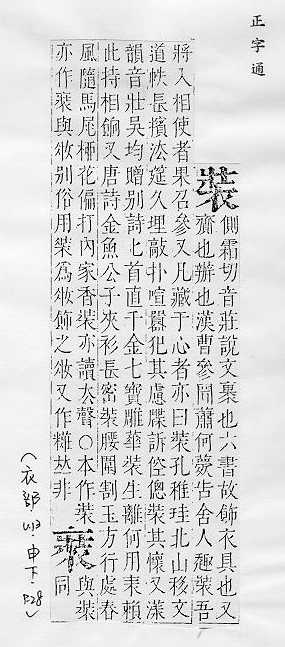 正字通
裝
側霜切音莊說文裹也六書故飾衣具也又
齎也辦也漢曹參聞蕭何薨告舍人趣裝吾
將入相使者果召參又凡藏于心者亦曰裝孔稚珪北山移文
道帙長擯法筵久埋敲扑喧囂犯其慮牒訴倥傯裝其懷又漾
韻音壯吳均贈別詩七首直千金七寶雕華裝生離何用表賴
此持相餉又唐詩金魚公子夾衫長密裝腰割玉方行處春
風隨馬尾柳花偏打內家香裝亦讀去聲○本作裝
亦作與妝別俗用裝爲妝飾之妝又作糚𠀤非
與裝
同
(衣部 申下 P.28)